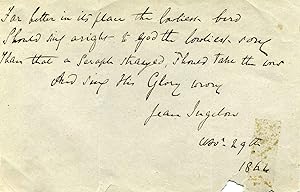 Far better in its place the lowliest bird
Should sing aright to God the lowliest song
Than that a Seraph strayed, should take the word
And sing His Glory wrong
Jean Ingelow
Nov. 29th
1864